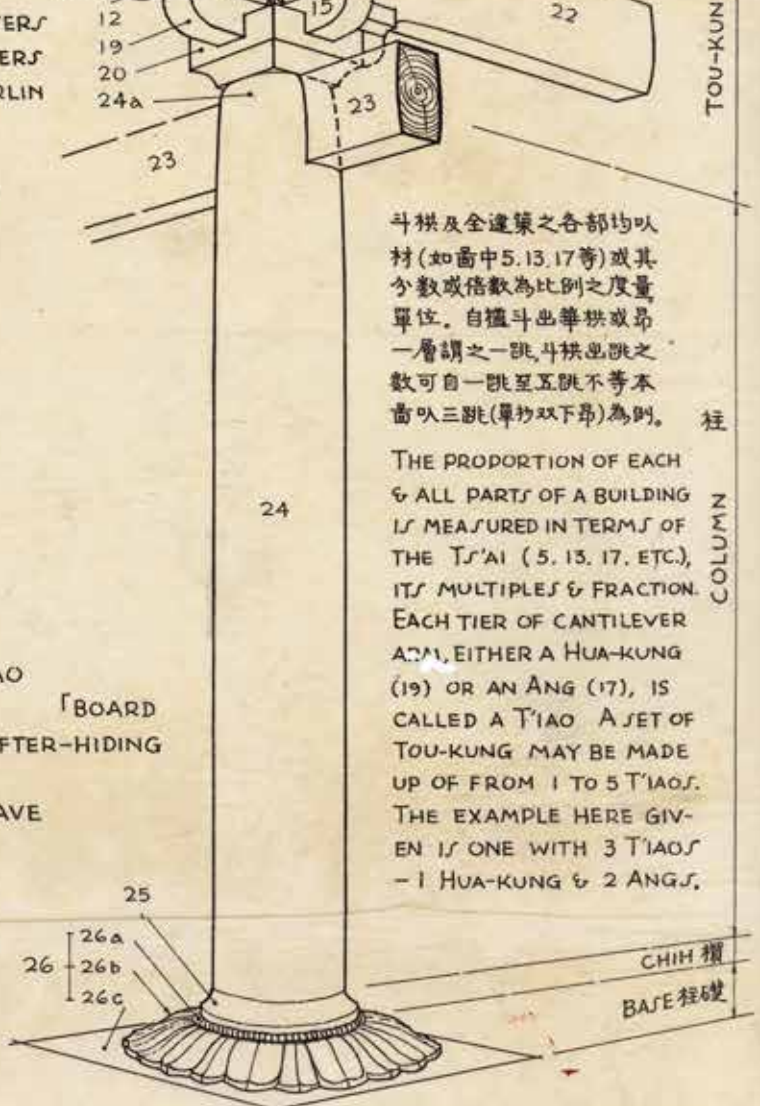 ERS
ERS
RLIN
12
19
20
24a
15
22
23
23
TOU-KUN
斗栱及全建築之各部均以
材(如圖中5.13.17等)或其
分數或倍數為比例之度量
單位。自櫨斗出華栱或昂
一層謂之一跳,斗栱出跳之
數可自一跳至五跳不等本
圖以三跳(單抄双下昂)為例。
THE PROPORTION OF EACH
& ALL PARTS OF A BUILDING
IS MEASURED IN TERMS OF
THE TS'AI (5. 13. 17. ETC.),
ITS MULTIPLES & FRACTION.
EACH TIER OF CANTILEVER
ARM, EITHER A HUA-KUNG
(19) OR AN ANG (17), IS
CALLED A T'IAO A SET OF
TOU-KUNG MAY BE MADE
UP OF FROM 1 TO 5 T'IAOS.
THE EXAMPLE HERE GIV-
EN IS ONE WITH 3 T'IAOS
- 1 HUA-KUNG & 2 ANGS.
柱
COLUMN
24
AO
「BOARD
FTER-HIDING
AVE
25
26a
26 26b
26c
CHIH 櫍
BASE 柱礎